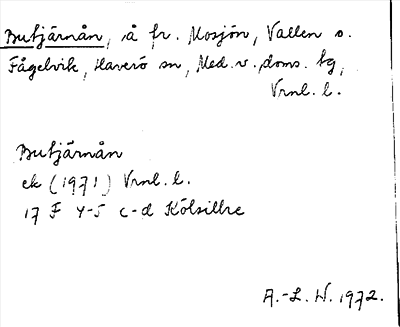 Butjärnån, å fr. Mosjön, Vallen o.
Fågelvik, Haverö sn, Med. v. doms. tg,
Vrnl. l.
Butjärnån
ek (1971) Vrnl. l.
17 F 4-5 c-d Kölsillre
A.-L. W. 1972.